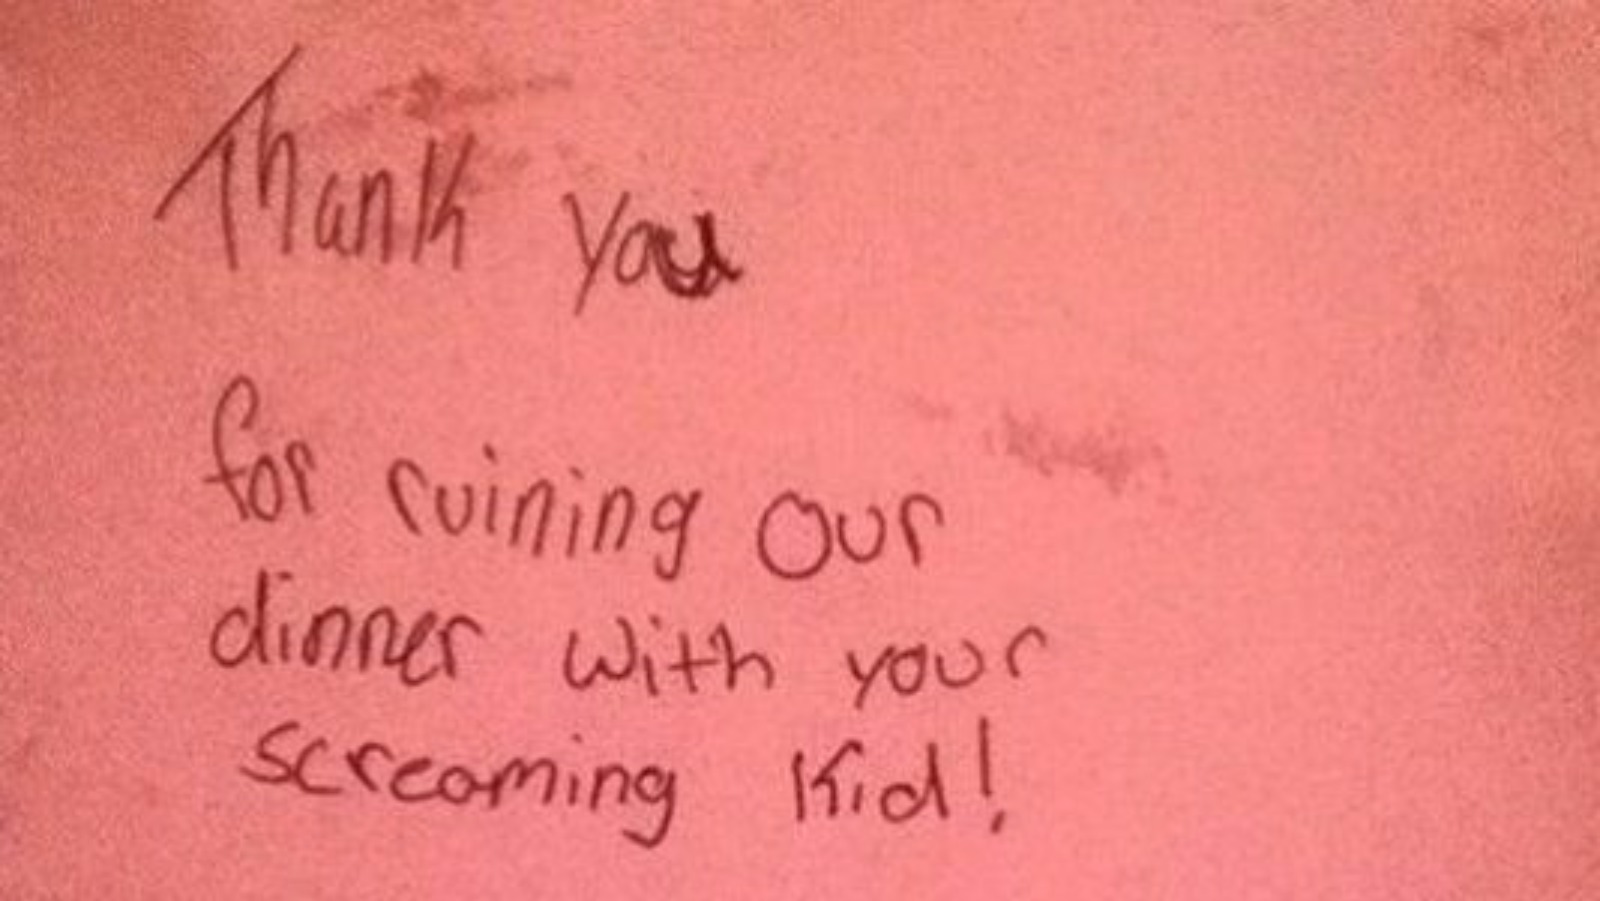 Thank you
for ruining our
dinner with your
screaming kid!